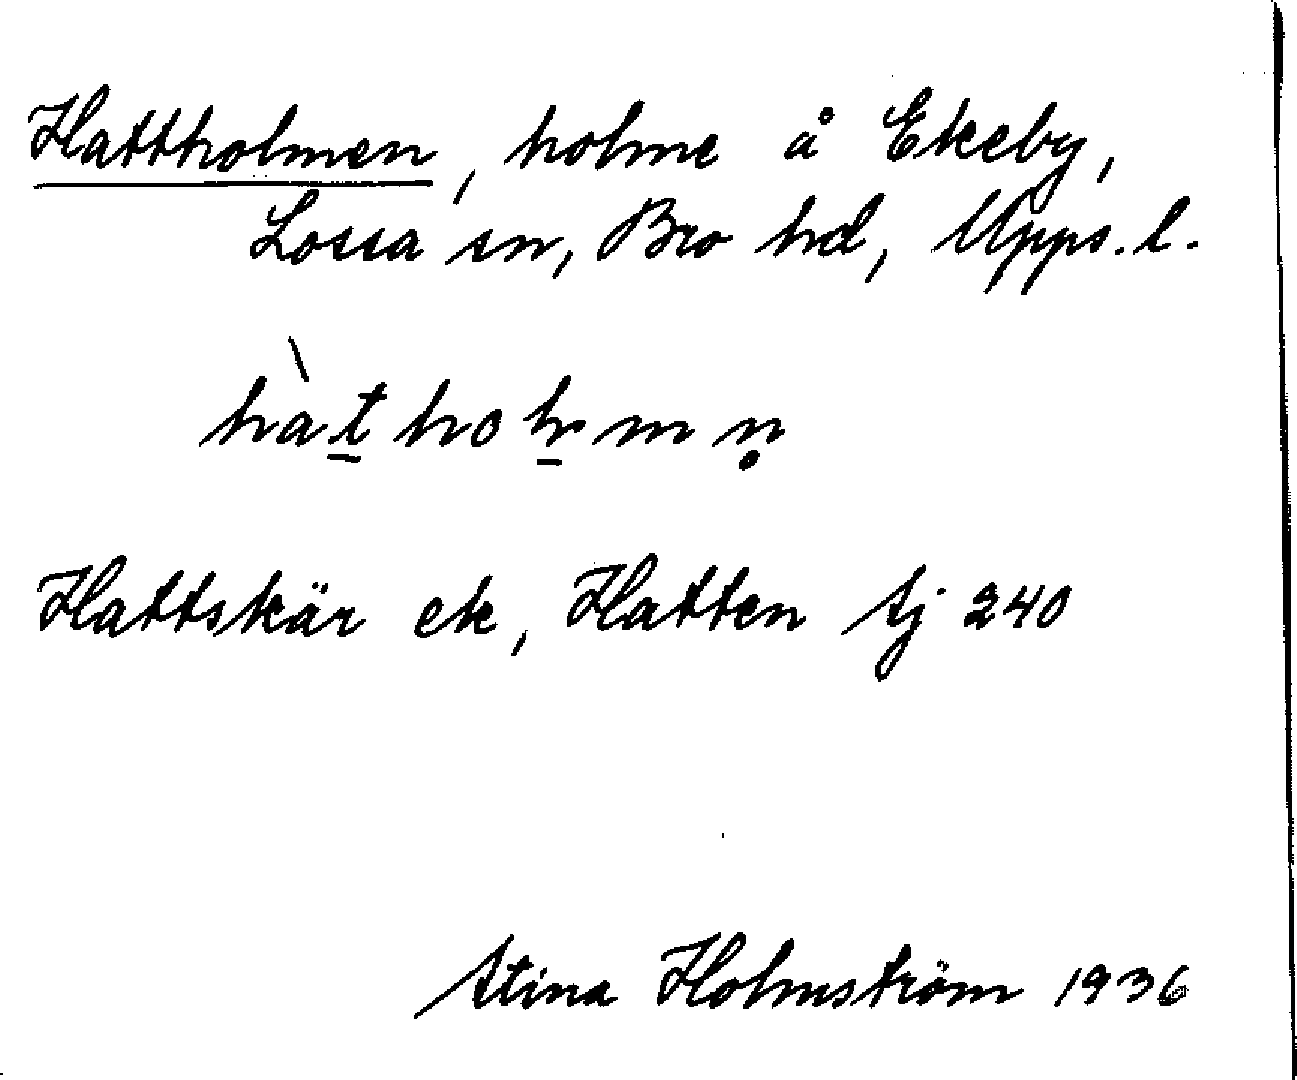 Hattholmen, holme å Ekeby,
Lossa sn, Bro hd, Upps. l.
hàt̲hoh̲mṇ
Hattskär ek, Hatten sj 240
Stina Holmström 1936